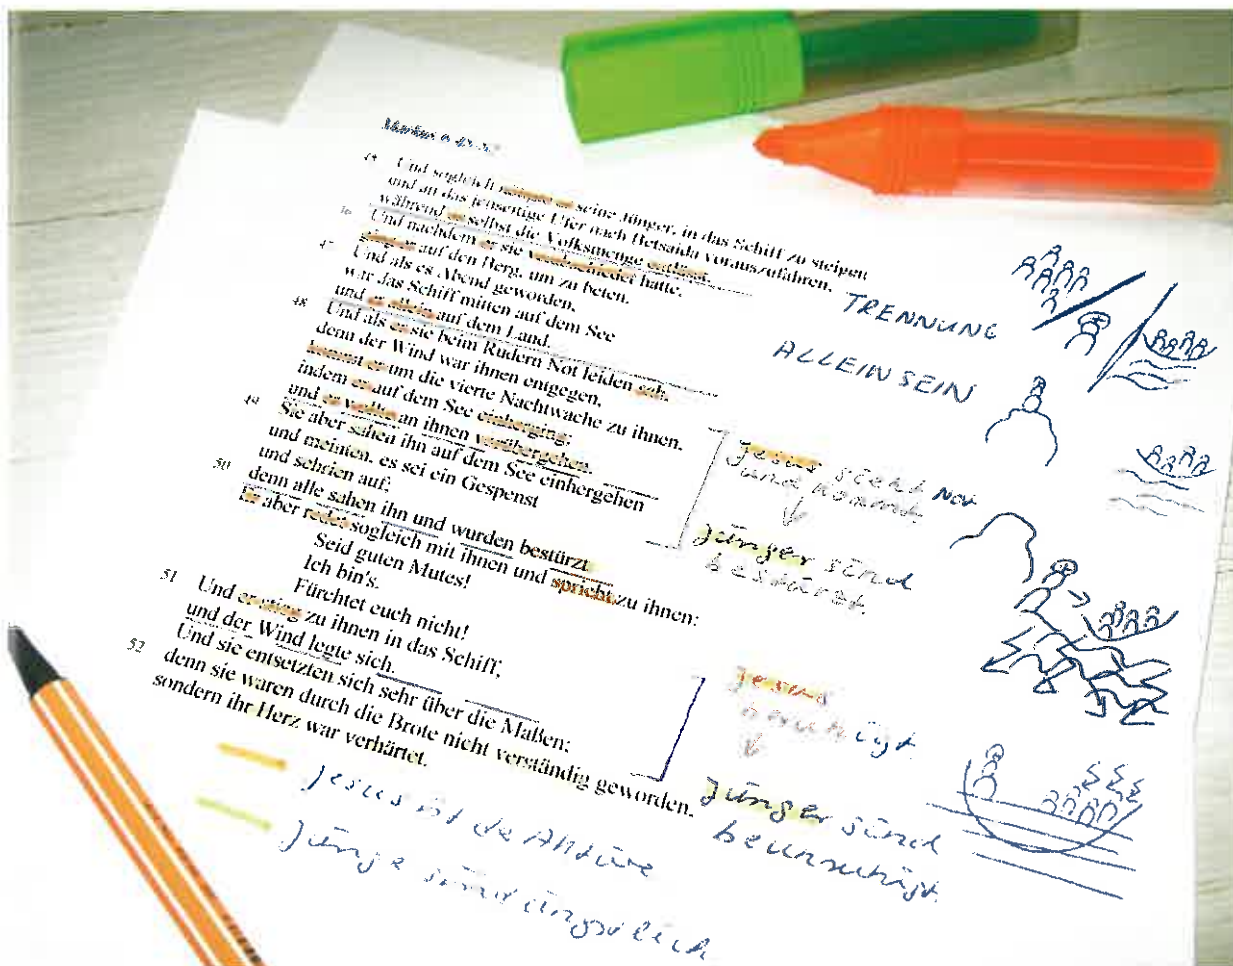 Markus 6 45-52
45 Und sogleich nötigte er seine Jünger, in das Schiff zu steigen
und an das jenseitige Ufer nach Betsaida vorauszufahren,
während er selbst die Volksmenge entlässt.
46 Und nachdem er sie verabschiedet hatte,
ging er auf den Berg, um zu beten.
47 Und als es Abend geworden,
war das Schiff mitten auf dem See
und er allein auf dem Land.
48 Und als er sie beim Rudern Not leiden sah,
denn der Wind war ihnen entgegen,
kommt er um die vierte Nachtwache zu ihnen.
indem er auf dem See einherging;
und er wollte an ihnen vorübergehen.
49 Sie aber sahen ihn auf dem See einhergehen
und meinten, es sei ein Gespenst
und schrien auf;
50 denn alle sahen ihn und wurden bestürzt
Er aber redet sogleich mit ihnen und spricht zu ihnen:
Seid guten Mutes!
Ich bin's.
Fürchtet euch nicht!
51 Und er stieg zu ihnen in das Schiff,
und der Wind legte sich.
Und sie entsetzten sich sehr über die Maßen;
52 denn sie waren durch die Brote nicht verständig geworden,
sondern ihr Herz war verhärtet.
TRENNUNG
ALLEIN SEIN
Jesus sieht Not
und kommt.
Jünger sind
bestürzt.
Jesus
beruhigt
Jünger sind
beunruhigt.
Jesus ist
Jünge sind